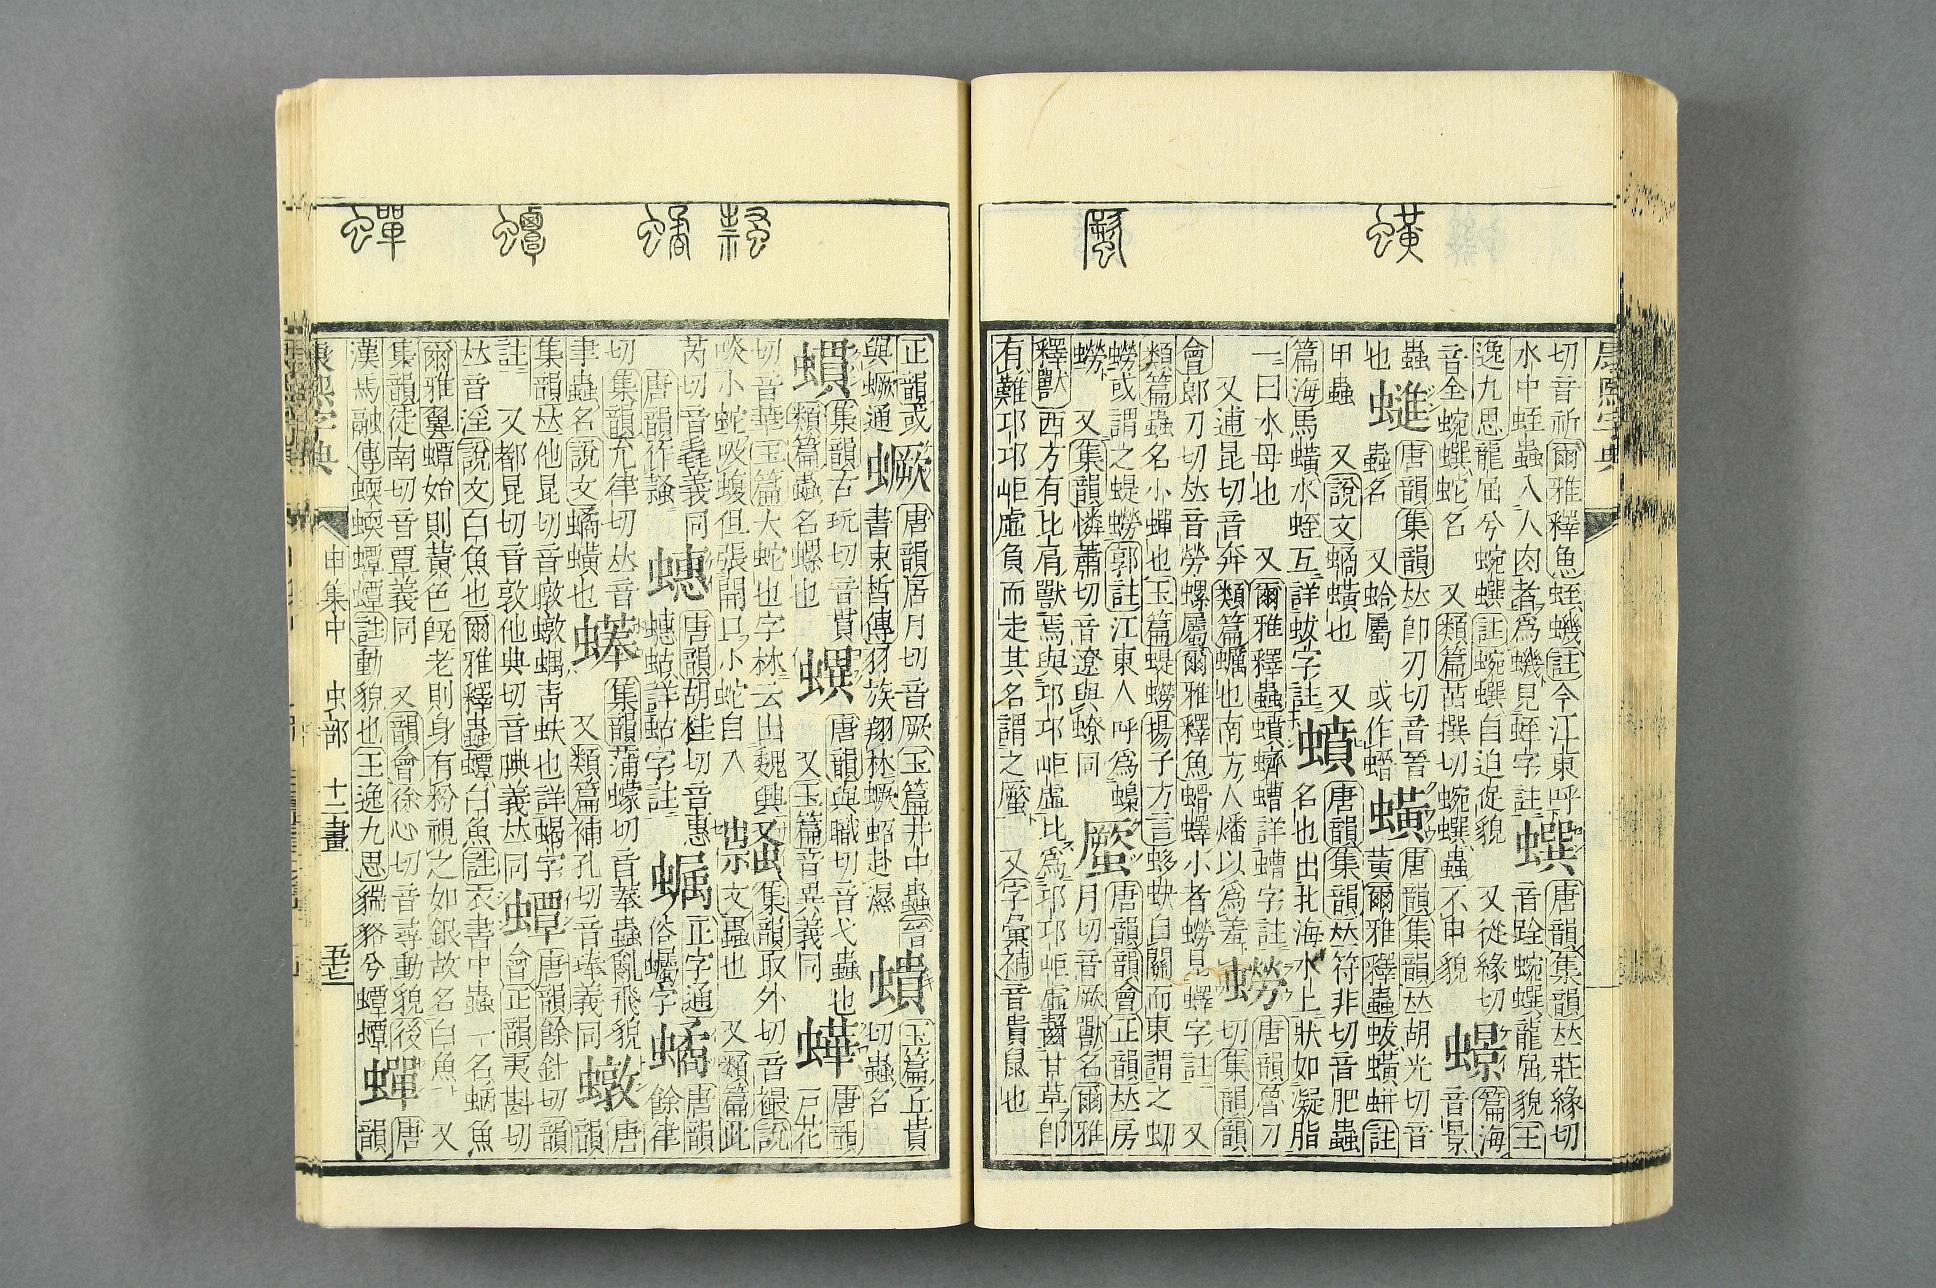 切音祈爾雅釋魚蛭蟣註今江東呼
水中蛭蟲入人肉者為蟣見蛭字註
蟤
唐韻集韻𠀤莊緣切
音跧蜿蟤龍屈貌王
逸九思龍屈兮蜿蟤註蜿蟤自迫促貌 又從緣切
音全蜿蟤蛇名 又類篇茁撰切蜿蟤蟲不申貌
蟓
篇海
音景
蟲
也
𧑆
唐韻集韻𠀤即刃切音晉
蟲名 又蛤屬 或作䗯
蟥
唐韻集韻𠀤胡光切音
黃爾雅釋蟲蛂蟥蛢註
甲蟲 又說文蟜蟥也 又
篇海馬蟥水蛭互詳蛂字註
蟦
唐韻集韻𠀤符非切音肥蟲
名也出北海水上狀如凝脂
一曰水母也 又爾雅釋蟲蟦蠐螬詳螬字註
又逋昆切音奔類篇蠣也南方人燔以為羞
蟧
唐韻魯刀
切集韻韻
會郎刀切𠀤音勞螺屬爾雅釋魚蜎蠌小者蟧見蠌字註 又
類篇蟲名小蟬也玉篇蝭蟧揚子方言蛥蚗自關而東謂之虭
蟧或謂之蝭蟧郭註江東人呼為蟂
蟧 又集韻憐蕭切音遼與蟟同
蟨
唐韻韻會正韻𠀤房
月切音厥獸名爾雅
釋獸西方有比肩獸焉與邛邛岠虛比為邛邛岠虛齧甘草即
有難邛邛岠虛負而走其名謂之蟨 又字彙補音貴鼠也
正韻或
與蟩通
蟩
唐韻居月切音厥玉篇井中蟲
書束皙傳羽族翔林蟩蛁赴濕
蟦
玉篇丘貴
切蟲名
集韻古玩切音貫
類篇蟲名螺也
唐韻與職切音弋蟲也
又玉篇音異義同
唐韻
戶花
切音華玉篇大蛇也字林云出魏興
啖小蛇吸蝮但張開口小蛇自入
集韻取外切音襊說
文蟲也 又類篇此
芮切音毳義同
唐韻
蟪
唐韻胡桂切音惠
蟪蛄詳蛄字註
正字通
俗蠾字
蟜
唐韻
餘律
切集韻允律切𠀤音
聿蟲名說文蟜蟥也
集韻蒲蠓切音菶蟲亂飛貌
又類篇補孔切音琫義同
蜳
唐
韻
集韻𠀤他昆切音暾暾蝹青蚨也詳蝹字
註 又都昆切音敦他典切音腆義𠀤同
蟫
唐韻餘針切韻
會正韻夷斟切
𠀤音淫說文白魚也爾雅釋蟲蟫白魚註衣書中蟲一名蛃魚
爾雅翼蟫始則黃色旣老則身有粉視之如銀故名白魚 又
集韻徒南切音覃義同 又韻會徐心切音尋動貌後
漢馬融傳蝡蝡蟫蟫註動貌也王逸九思貒貉兮蟫蟫
蟬
唐
韻
康熙字典 申集中 虫部 十二畫